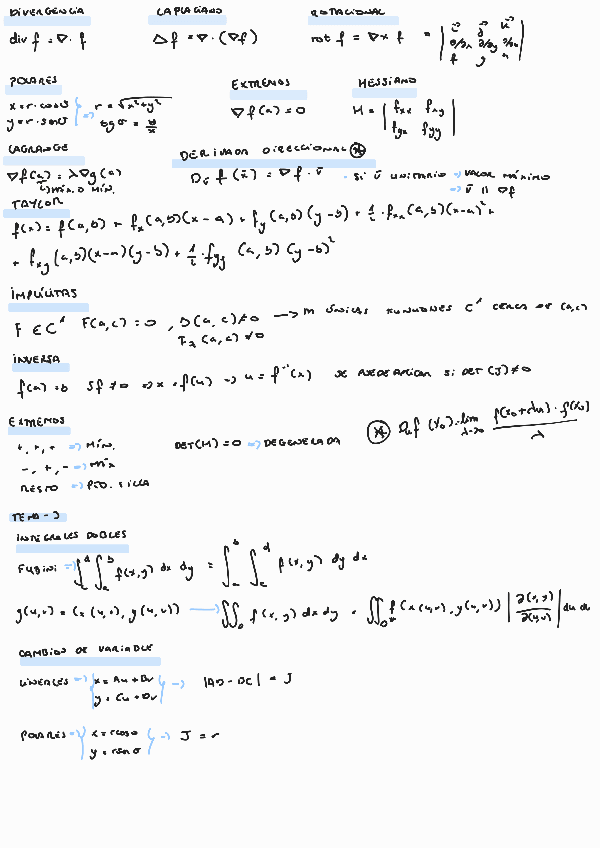 DIVERGENCIA
LAPLACIANO
ROTACIONAL
div f = ∇ · f
△f = ∇ · (∇f)
rot f = ∇ x f = | i j k
∂/∂x ∂/∂y ∂/∂z
f g h |
POLARES
EXTREMOS
HESSIANO
x = r · cosσ
y = r · senσ
=> r = √x²+y²
tgσ = y/x
∇f(a) = 0
H = | fxx fxy
fyx fyy |
LAGRANGE
DERIVADA DIRECCIONAL (*)
∇f(a) = λ∇g(a)
↳ MÁX. O MÍN.
Dv f(x̄) = ∇f · v̄ - SI v̄ UNITARIO => VALOR MÁXIMO
=> v̄ || ∇f
TAYLOR
f(x) = f(a,b) + fx(a,b)(x-a) + fy(a,b)(y-b) + 1/2 · fxx(a,b)(x-a)² +
+ fxy(a,b)(x-a)(y-b) + 1/2 · fyy (a,b) (y-b)²
IMPLÍCITAS
F ∈ C¹ F(a,c) = 0 , D(a,c) ≠ 0 -> M ÚNICAS FUNCIONES C¹ CERCA DE (a,c)
Fz(a,c) ≠ 0
INVERSA
f(a) = b Jf ≠ 0 => x = f(u) => u = f⁻¹(x) SE PUEDE APLICAR SI DET(J) ≠ 0
EXTREMOS
+, +, + => MÍN.
-, +, - => MÁX
RESTO => PTO. SILLA
DET(H) = 0 => DEGENERADA
(*) Duf (x0) = lim λ->0 f(x0+λu) - f(x0) / λ
TEMA-3
INTEGRALES DOBLES
FUBINI => ∫c^d ∫a^b f(x,y) dx dy = ∫a^b ∫c^d f(x,y) dy dx
g(u,v) = (x(u,v), y(u,v)) -> ∬D f(x,y) dx dy = ∬D* f(x(u,v), y(u,v)) |∂(x,y)/∂(u,v)| du dv
CAMBIOS DE VARIABLE
LINEALES => { x = Au + Bv
y = Cu + Dv } => |AD - BC| = J
POLARES => { x = rcosσ
y = rsenσ } => J = r